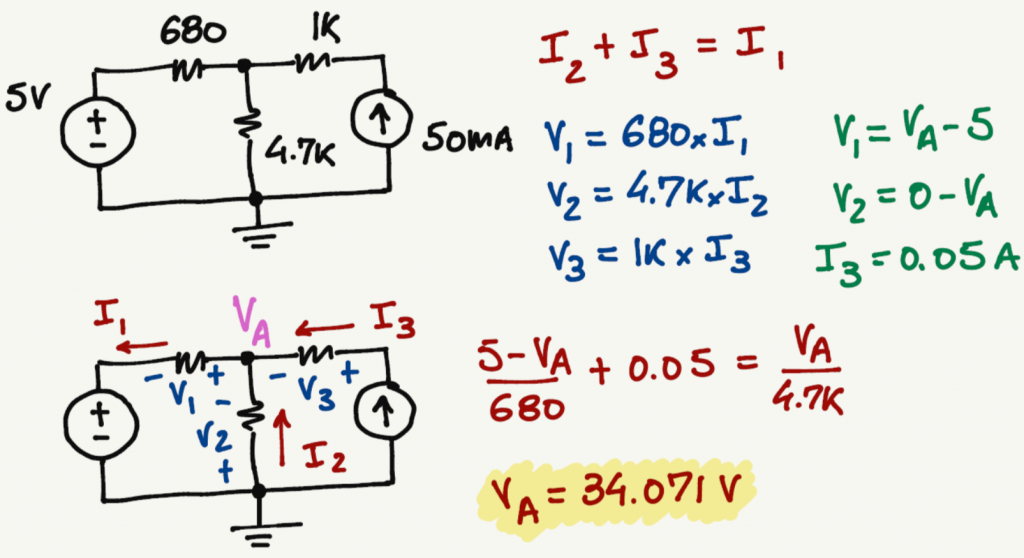 680 1K
5V
4.7K
50mA
I₂ + I₃ = I₁
V₁ = 680×I₁
V₂ = 4.7K×I₂
V₃ = 1K × I₃
V₁ = V_A - 5
V₂ = 0 - V_A
I₃ = 0.05 A
I₁ V_A I₃
- V₁ + - V₃ +
- V₂ +
I₂
(5 - V_A)/680 + 0.05 = V_A/4.7K
V_A = 34.071 V